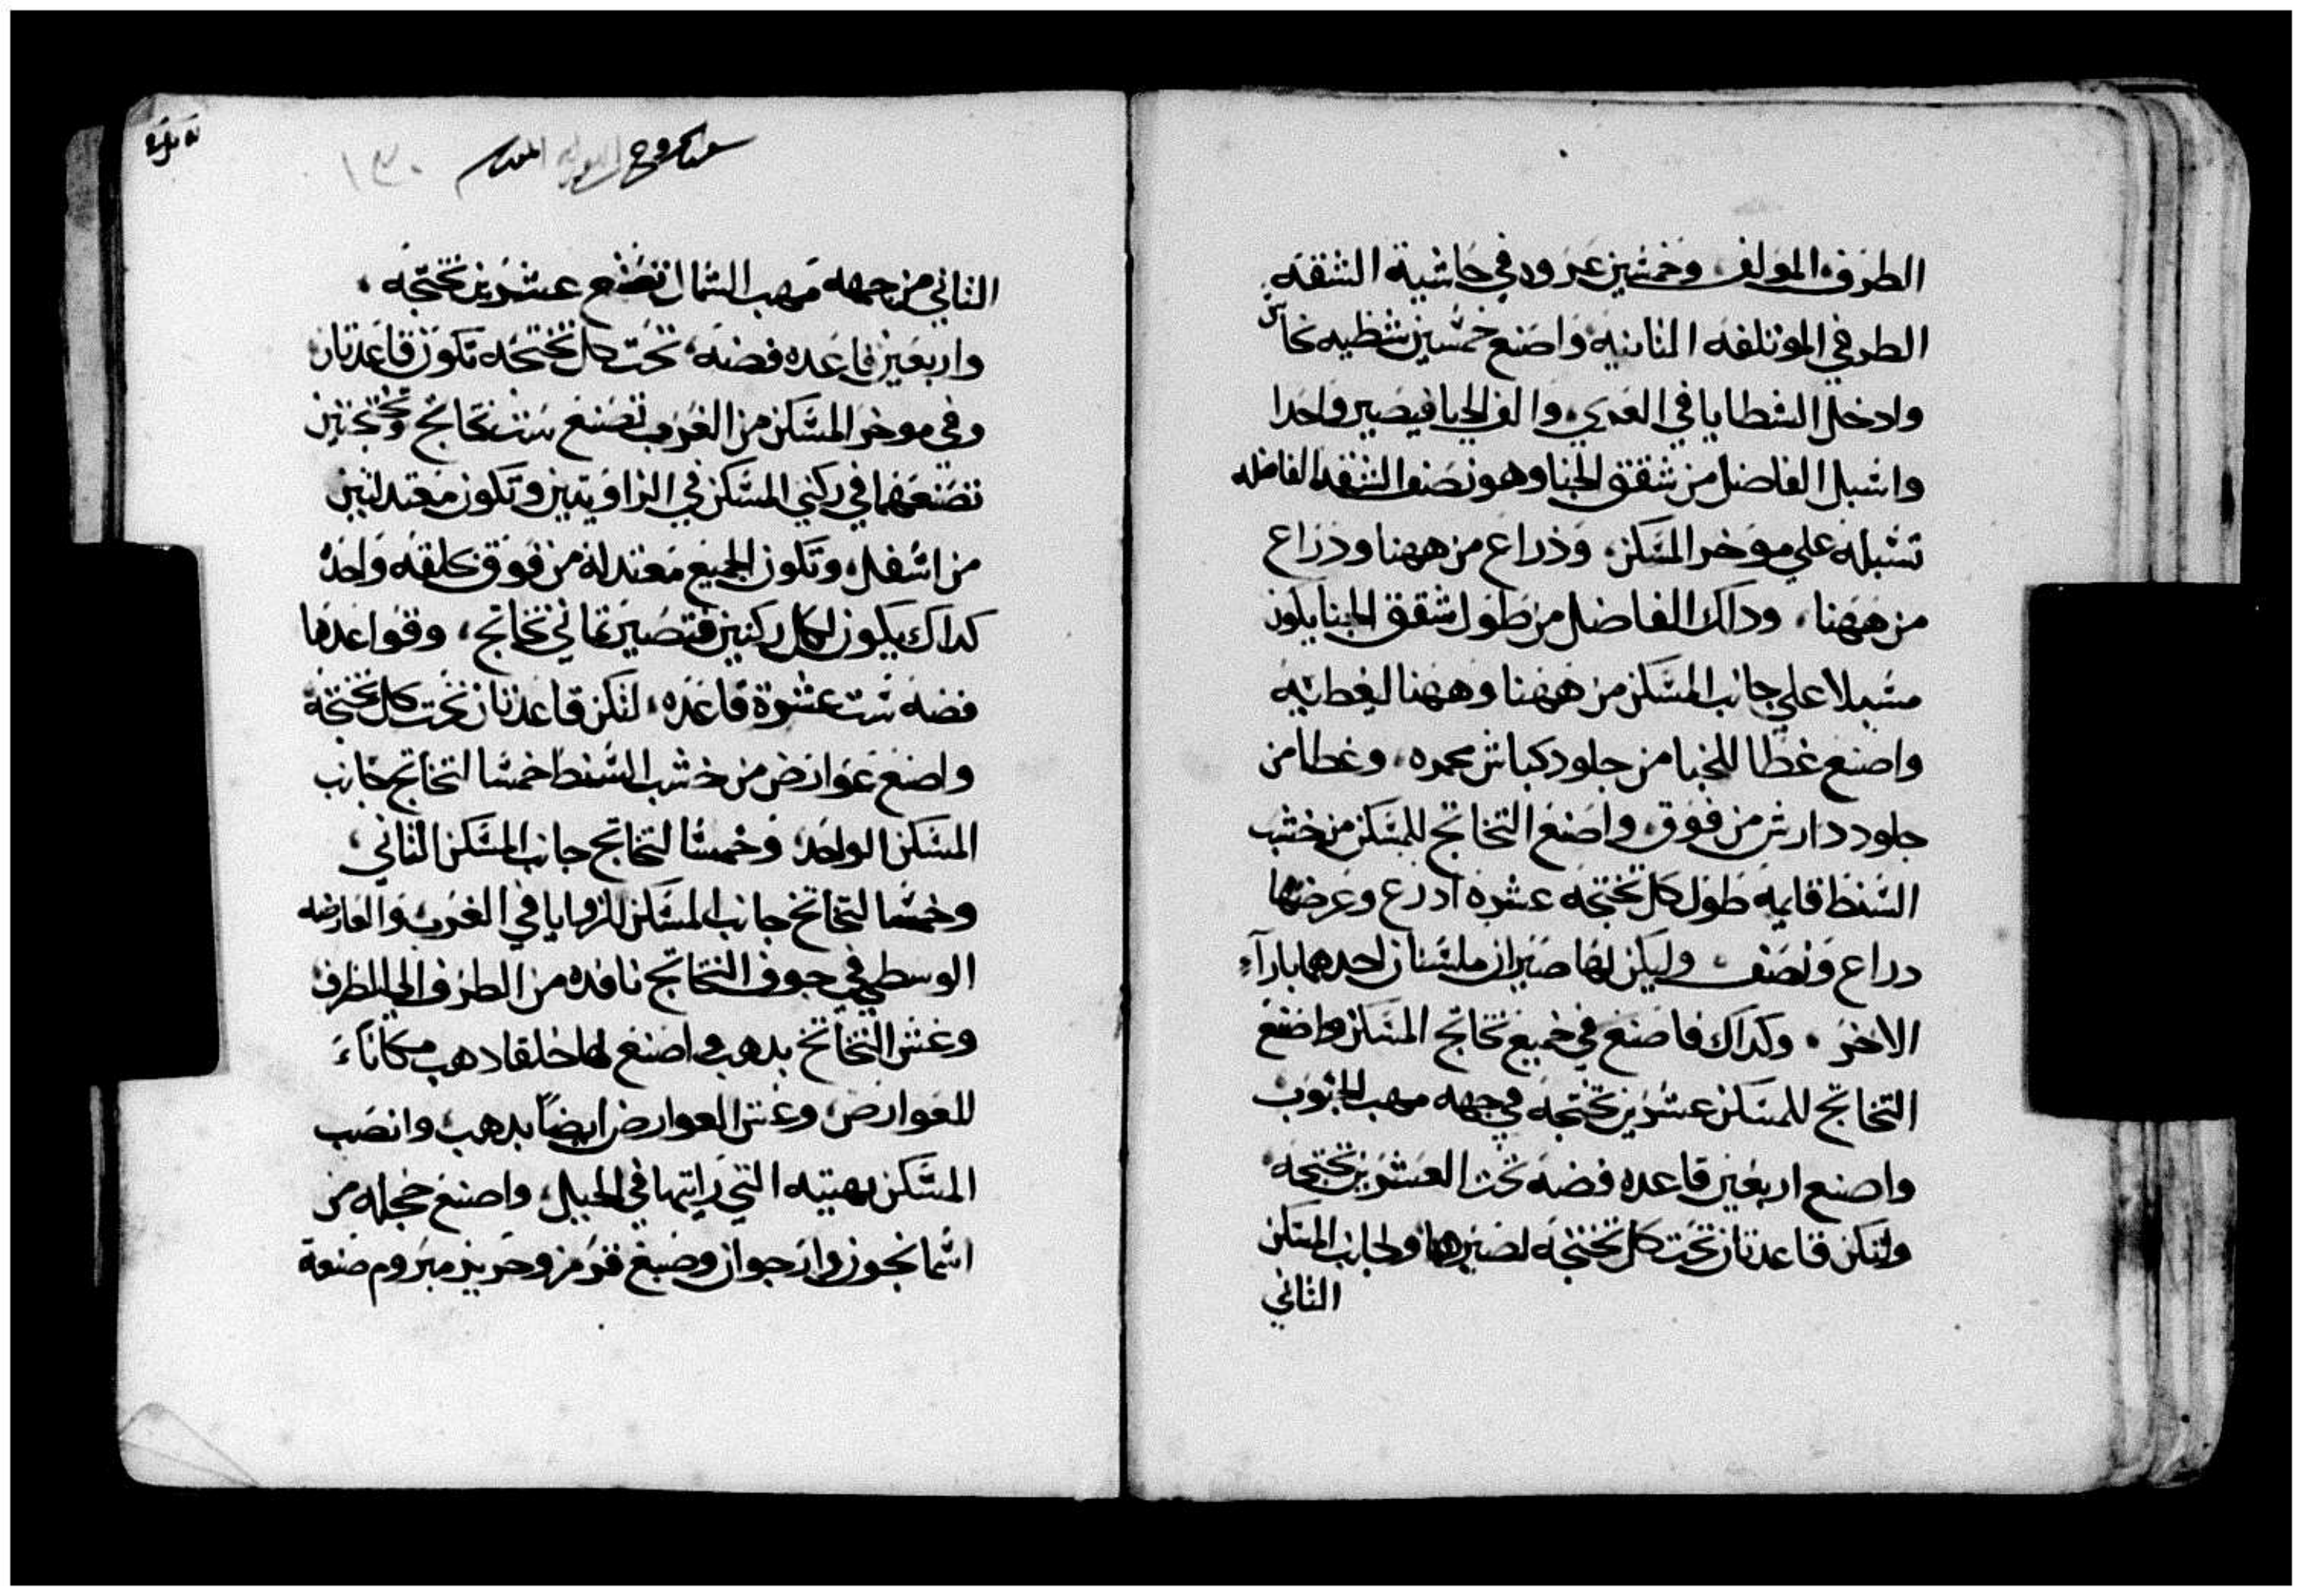 الطرف المولف وخمسين عروه في حاشية الشقه
الطرفي الموتلفه الثانيه واصنع خمسين شظيه نحاس
وادخل الشظايا في العري والف الخبا فيصير واحدا
واسبل الفاضل من شقق الخبا وهو نصف الشقه الفاضله
تسبله علي موخر المسكن وذراع من ههنا وذراع
من ههنا وداك الفاضل من طول شقق الخبا يكون
مسبلا علي جانب المسكن من ههنا وههنا ليغطيه
واصنع غطا للخبا من جلود كباش محمره وغطا من
جلود دارش من فوق واصنع التخاتج للمسكن من خشب
السنط قايمه طول كل تختجه عشره ادرع وعرضها
دراع ونصف وليكن لها صيران ملسنان احدهما بازآء
الاخر وكداك فاصنع في جميع تخاتج المسكن واصنع
التخاتج للمسكن عشرين تختجه في جهه مهب الجنوب
واصنع اربعين قاعده فضه تحت العشرين تختجه
ولتكن قاعدتان تحت كل تختجه لصيرها ولجانب المسكن
الثاني
الثاني من جهه مهب الشمال تصنع عشرين تختجه
واربعين قاعده فضه تحت كل تختجه تكون قاعدتان
وفي موخر المسكن من الغرب تصنع ست تخاتج وتختجتين
تصنعهما في ركني المسكن في الزاويتين وتكون معتدلتين
من اسفل وتكون الجميع معتدلة من فوق كحلقه واحده
كداك يكون لكل ركنين فتصير ثماني تخاتج وقواعدها
فضه ست عشرة قاعده لتكن قاعدتان تحت كل تختجه
واصنع عوارض من خشب السنط خمسا لتخاتج جانب
المسكن الواحد وخمسا لتخاتج جانب المسكن الثاني
وخمسا لتخاتج جانب المسكن للزوايا في الغرب والعارضه
الوسطي في جوف التخاتج نافده من الطرف الي الطرف
وغش التخاتج بدهب واصنع لها حلقا دهب مكاناء
للعوارض وغش العوارض ايضاً بدهب وانصب
المسكن بهيته التي رايتها في الجبل واصنع حجله من
اسمانجون وارجوان وصبغ قرمز وحرير مبروم صنعة